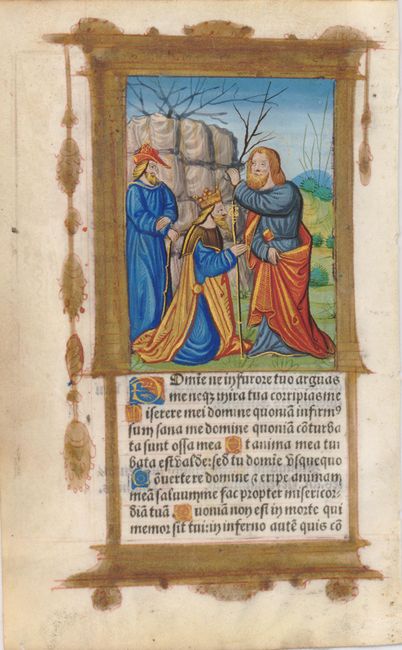 Domie ne in furore tuo arguas
me neqz in ira tua corripias me
Miserere mei domine quoniã infirmꝰ
sum sana me domine quoniã cõturba
ta sunt ossa mea Et anima mea tur
bata est valde: sed tu domie vsquequo
Cõuertere domine ⁊ eripe animam
meã saluum me fac propter misericor
diã tuã Quoniam non est in morte qui
memor sit tui: in inferno autẽ quis cõ